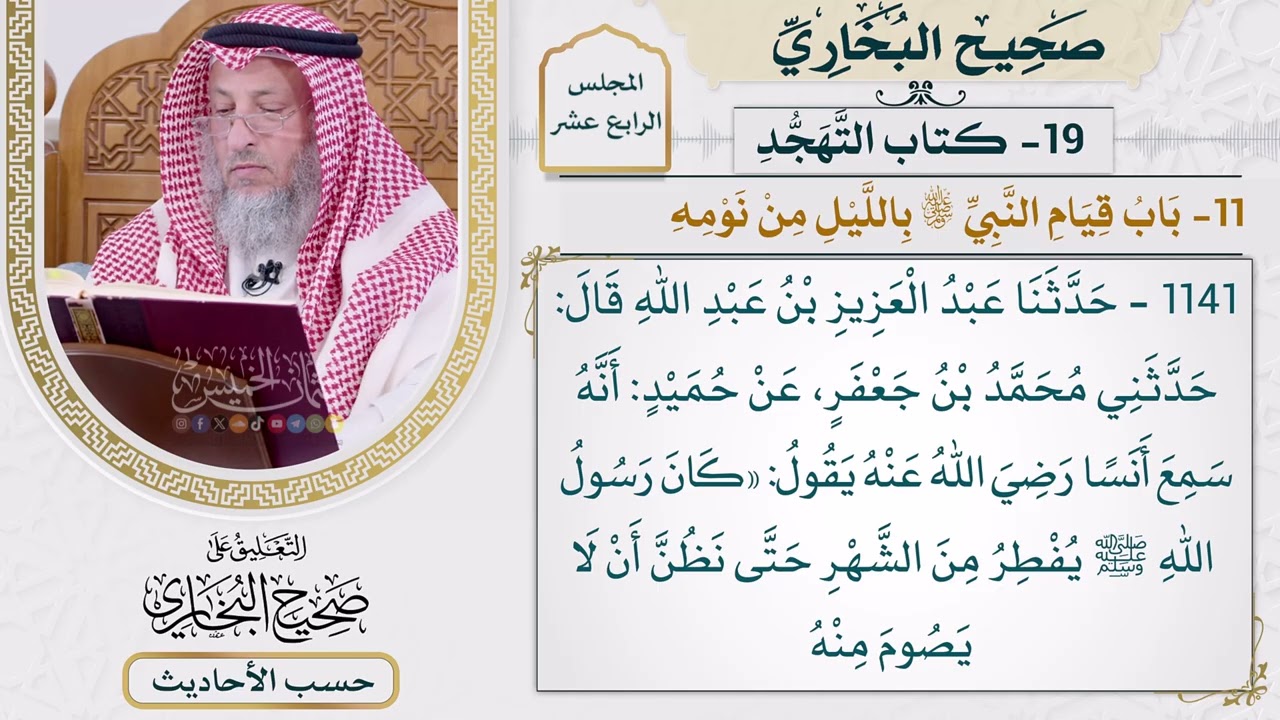 صَحِيح البُخَارِيِّ
المجلس
الرابع عشر
19- كتاب التَّهَجُّدِ
11- بَابُ قِيَامِ النَّبِيِّ ﷺ بِاللَّيْلِ مِنْ نَوْمِهِ
1141 - حَدَّثَنَا عَبْدُ الْعَزِيزِ بْنُ عَبْدِ اللهِ قَالَ:
حَدَّثَنِي مُحَمَّدُ بْنُ جَعْفَرٍ، عَنْ حُمَيْدٍ: أَنَّهُ
سَمِعَ أَنَسًا رَضِيَ اللهُ عَنْهُ يَقُولُ: «كَانَ رَسُولُ
اللهِ ﷺ يُفْطِرُ مِنَ الشَّهْرِ حَتَّى نَظُنَّ أَنْ لَا
يَصُومَ مِنْهُ
عثمان الخميس
التَّعْلِيقُ عَلَى
صَحِيحِ البُخَارِي
حسب الأحاديث